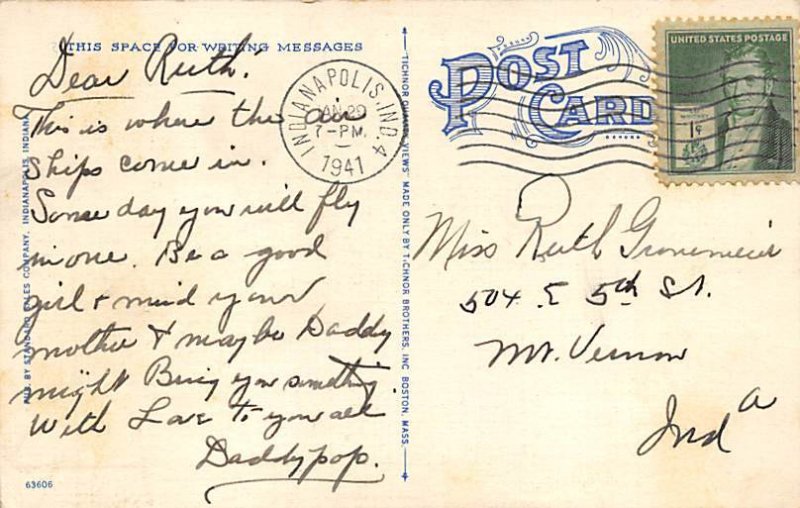 THIS SPACE FOR WRITING MESSAGES
Dear Ruth:
This is where the air
ships come in.
Some day you will fly
in one. Be a good
girl & mind your
mother & maybe Daddy
might Bring you something.
With Love to you all
Daddypop.
63606
PUB. BY STANDARD SALES COMPANY, INDIANAPOLIS, INDIANA
TICHNOR QUALITY VIEWS MADE ONLY BY TICHNOR BROTHERS, INC. BOSTON, MASS.
POST
CARD
INDIANAPOLIS, IND. 4
JAN 20
7-PM
1941
UNITED STATES POSTAGE
1¢
Miss Ruth
504 E 5th St.
Mt. Vernon
Inda